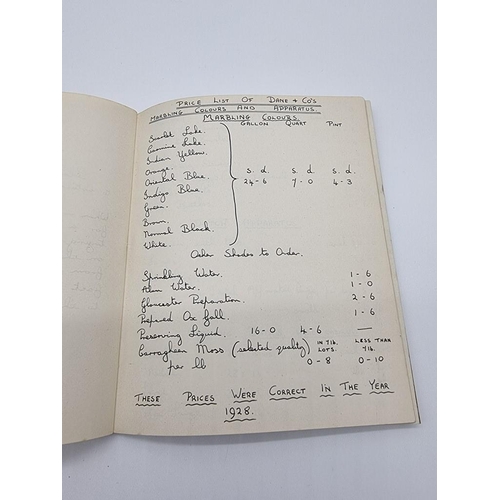 PRICE LIST OF DANE & CO'S
MARBLING COLOURS AND APPARATUS.
MARBLING COLOURS.
GALLON QUART PINT
Scarlet Lake.
Carmine Lake.
Indian Yellow.
Orange. s. d. s. d. s. d.
Oriental Blue. 24-6 7-0 4-3
Indigo Blue.
Green.
Brown.
Normal Black.
White.
Other Shades to Order.
Sprinkling Water. 1-6
Alum Water. 1-0
Gloucester Preparation. 2-6
Prepared Ox Gall. 1-6
Preserving Liquid. 16-0 4-6 —
Carragheen Moss (selected quality) IN 7lb. LOTS. LESS THAN 7lb.
per lb 0-8 0-10
THESE PRICES WERE CORRECT IN THE YEAR
1928.